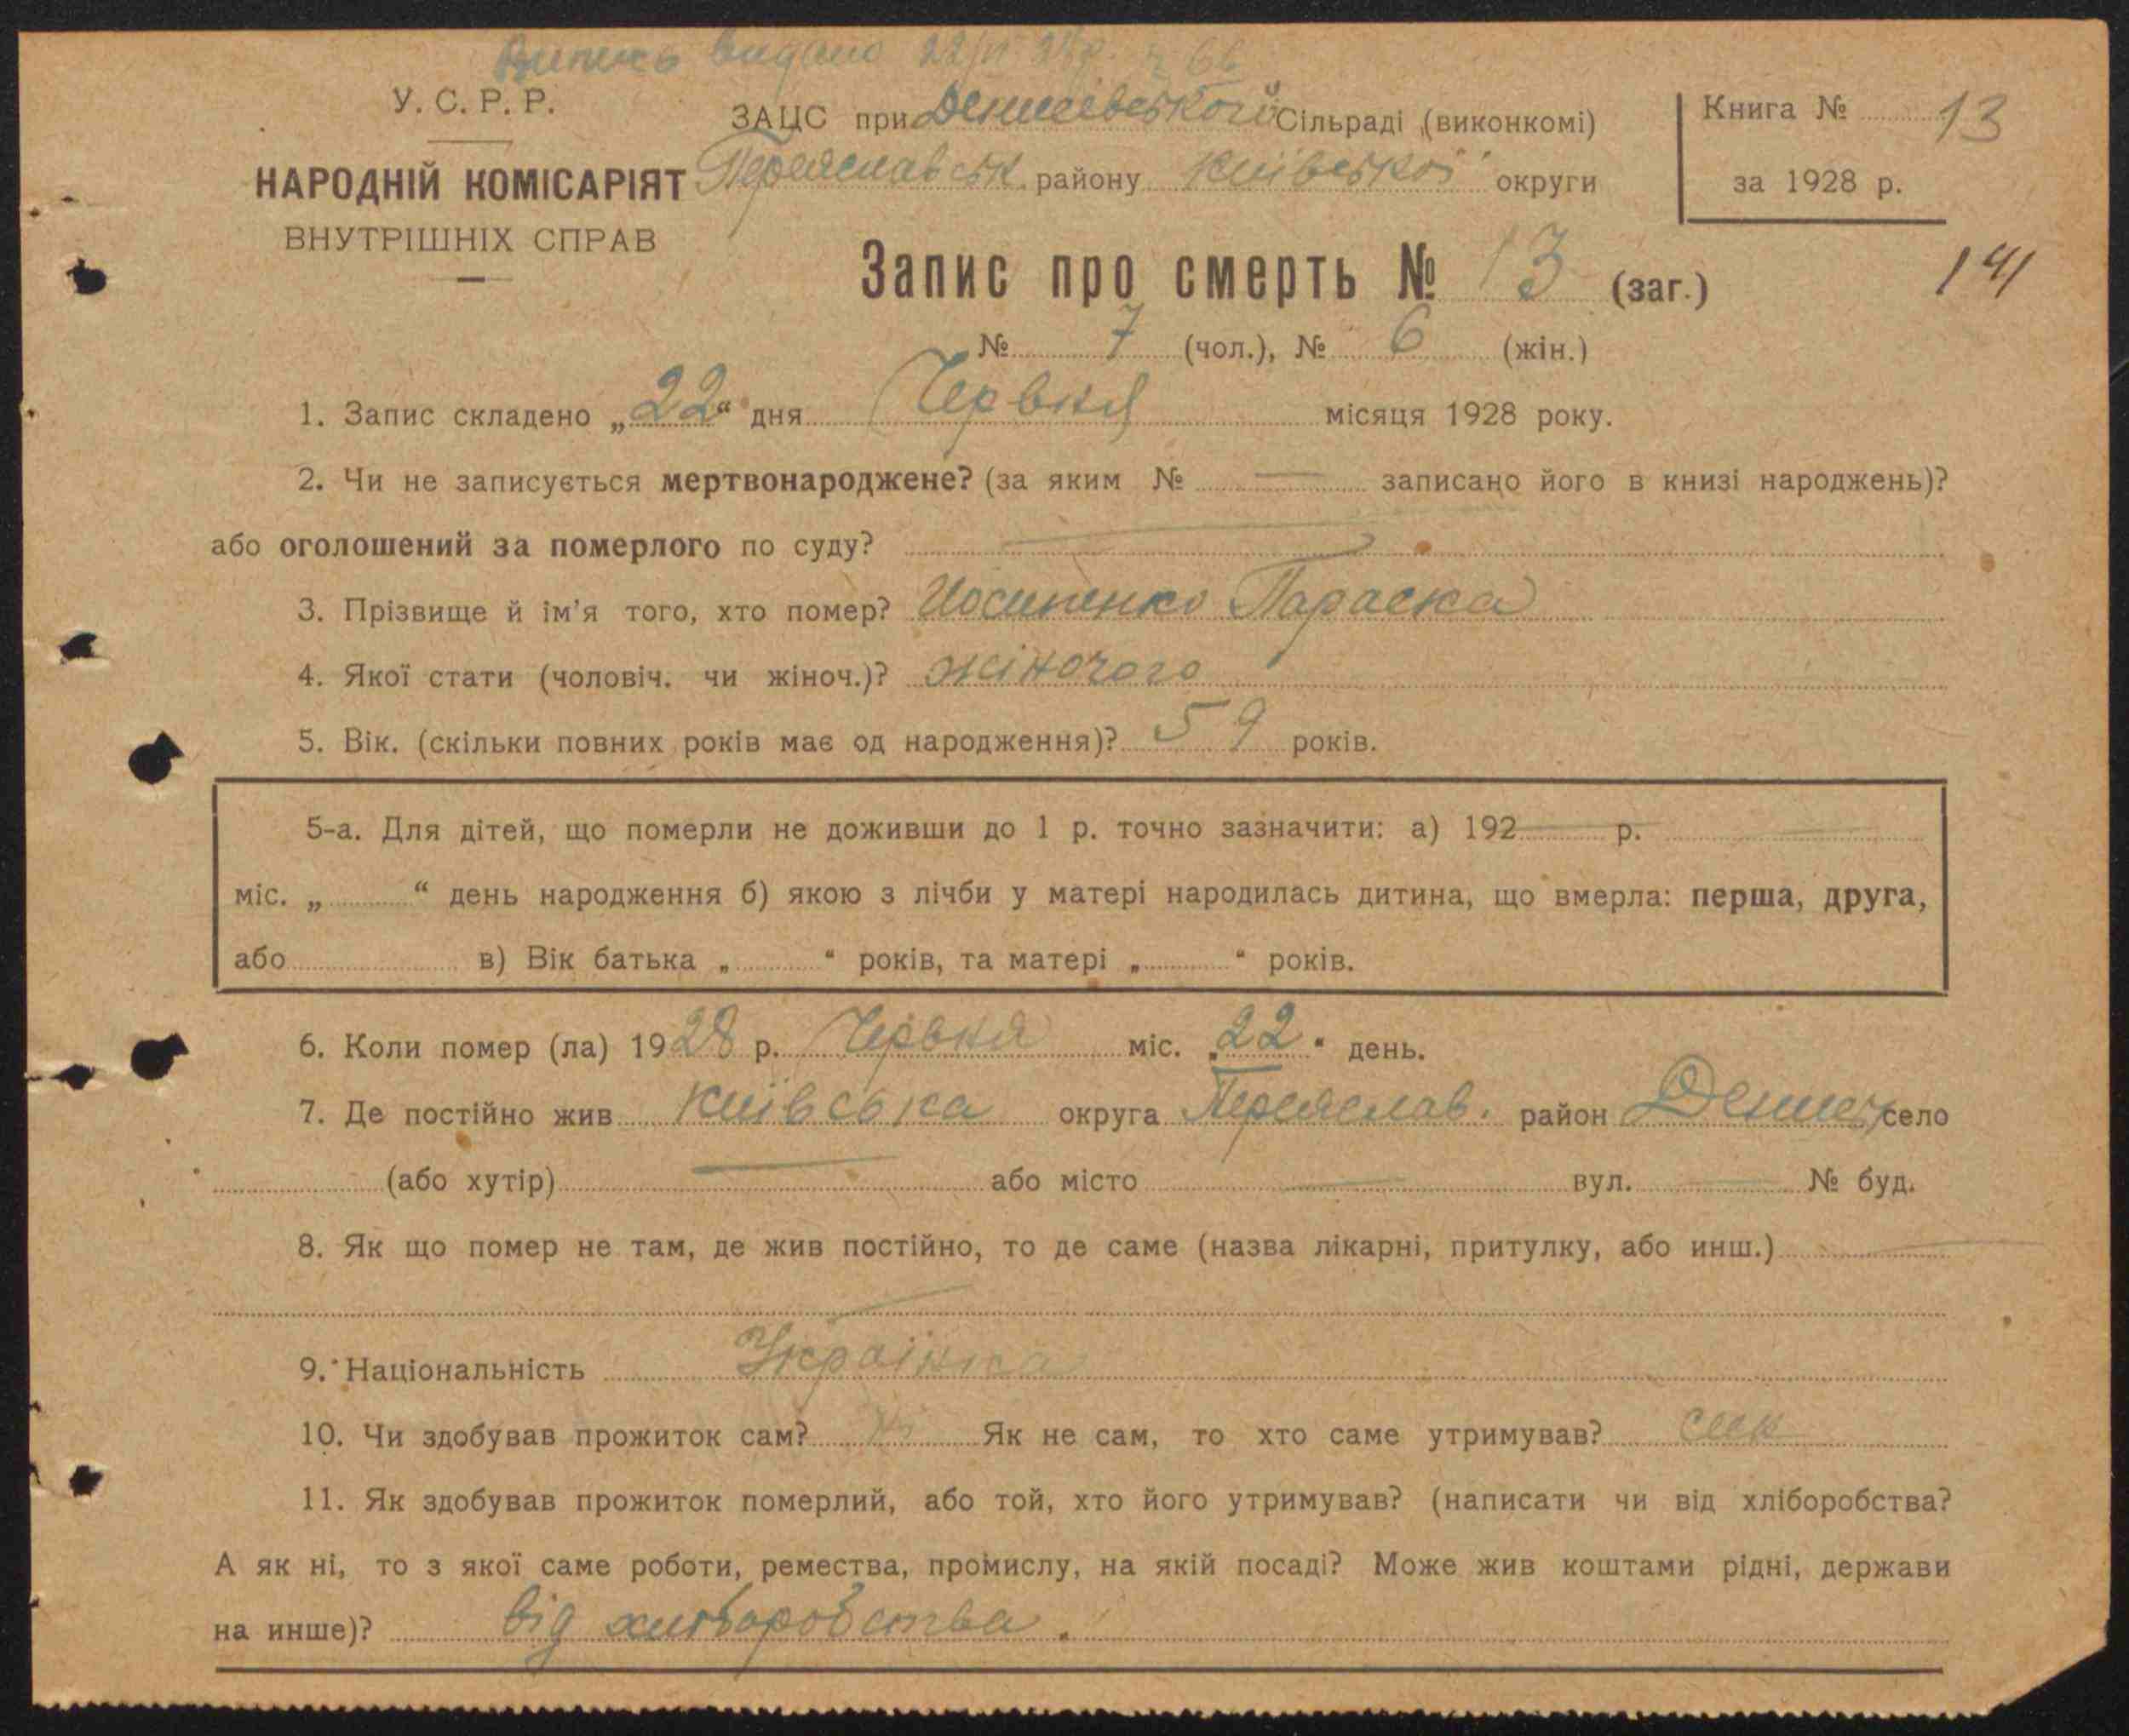 Випись видано 22/VI 28р. № 66
У. С. Р. Р.
ЗАЦС при Денисівськой Сільраді (виконкомі)
Книга № 13
НАРОДНІЙ КОМІСАРІЯТ
Переяславськ. району Київської округи
за 1928 р.
ВНУТРІШНІХ СПРАВ
Запис про смерть № 13 (заг.)
141
№ 7 (чол.), № 6 (жін.)
1. Запис складено „22“ дня Червня місяця 1928 року.
2. Чи не записується мертвонароджене? (за яким № — записано його в книзі народжень)?
або оголошений за померлого по суду? —
3. Прізвище й ім'я того, хто помер? Иосипенко Параска
4. Якої стати (чоловіч. чи жіноч.)? жіночого
5. Вік. (скільки повних років має од народження)? 59 років.
5-а. Для дітей, що померли не доживши до 1 р. точно зазначити: а) 192— р. —
міс. „ “ день народження б) якою з лічби у матері народилась дитина, що вмерла: перша, друга,
або в) Вік батька „ “ років, та матері „ “ років.
6. Коли помер (ла) 1928 р. Червня міс. „22“ день.
7. Де постійно жив Київська округа Переяслав. район Дениси село
(або хутір) — або місто — вул. — № буд.
8. Як що помер не там, де жив постійно, то де саме (назва лікарні, притулку, або инш.) —
—
9. Національність Українка
10. Чи здобував прожиток сам? Як не сам, то хто саме утримував? син
11. Як здобував прожиток померлий, або той, хто його утримував? (написати чи від хліборобства?
А як ні, то з якої саме роботи, ремества, промислу, на якій посаді? Може жив коштами рідні, держави
на инше)? від хліборобства.